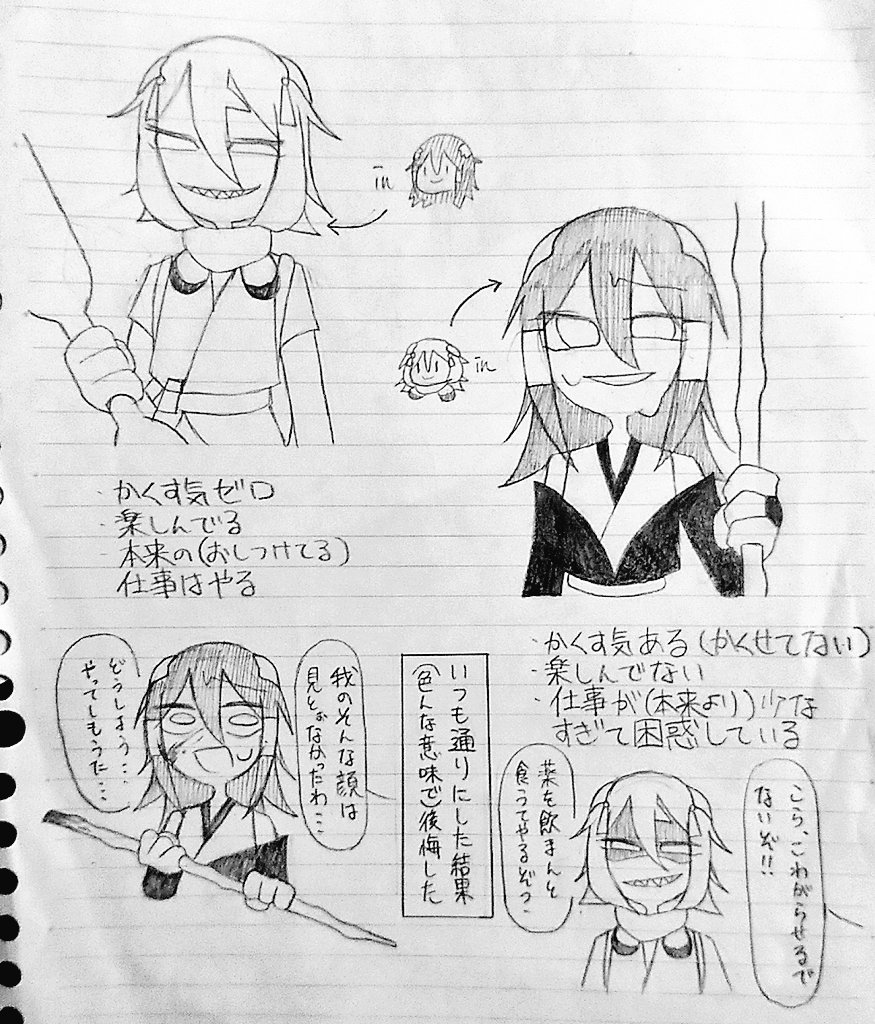 in
in
・かくす気ゼロ
・楽しんでる
・本来の(おしつけてる)
仕事はやる
・かくす気ある(かくせてない)
・楽しんでない
・仕事が(本来より)少な
すぎて困惑している
どうしよう…
やってしもうた…
我のそんな顔は
見とおなかったわ…
いつも通りにした結果
(色んな意味で)後悔した
薬を飲まんと
食ってやるぞう
こら、こわがらせるで
ないぞ!!